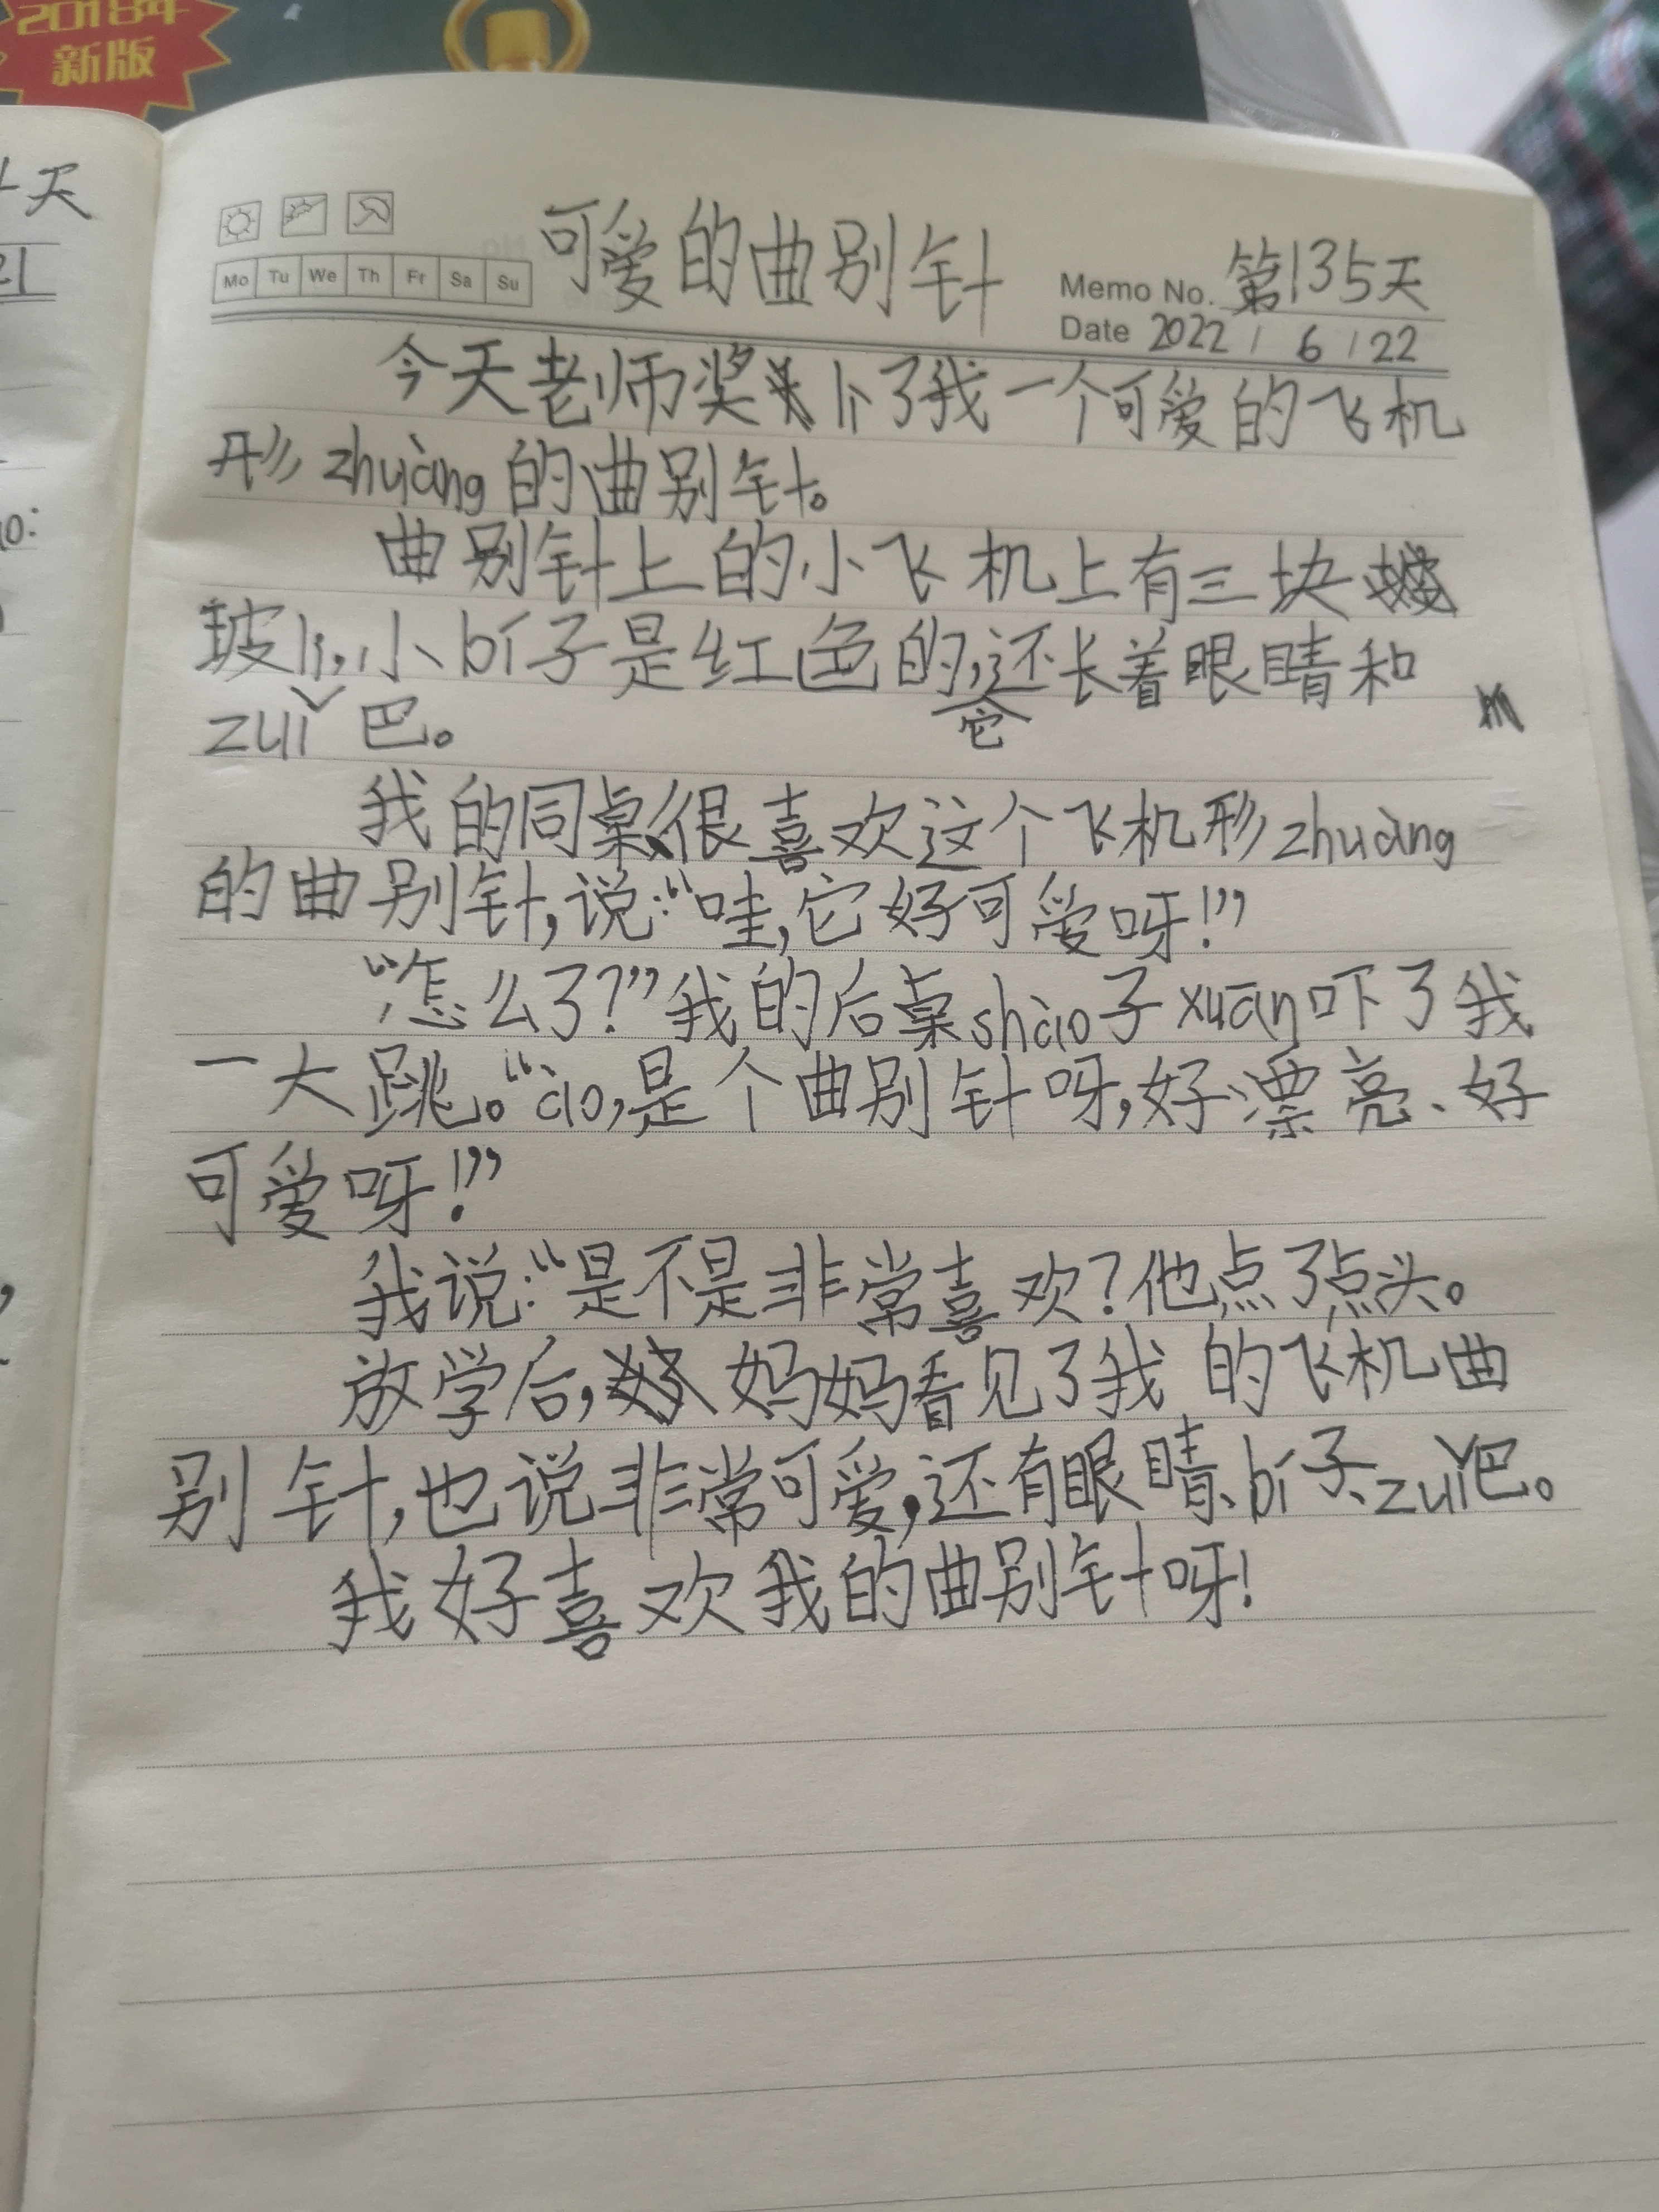 2018年
新版
天
可爱的曲别针
Mo Tu We Th Fr Sa Su
Memo No. 第135天
Date 2022 / 6 / 22
今天老师奖li了我一个可爱的飞机
形zhuàng的曲别针。
曲别针上的小飞机上有三块
玻li,小bí子是红色的,它还长着眼睛和
zuǐ巴。
我的同桌很喜欢这个飞机形zhuàng
的曲别针,说:“哇,它好可爱呀!”
“怎么了?”我的后桌shào子xuān吓了我
一大跳。“ào,是个曲别针呀,好漂亮、好
可爱呀!”
我说:“是不是非常喜欢?他点了点头。
放学后,妈妈看见了我的飞机曲
别针,也说非常可爱,还有眼睛、bí子、zuǐ巴。
我好喜欢我的曲别针呀!